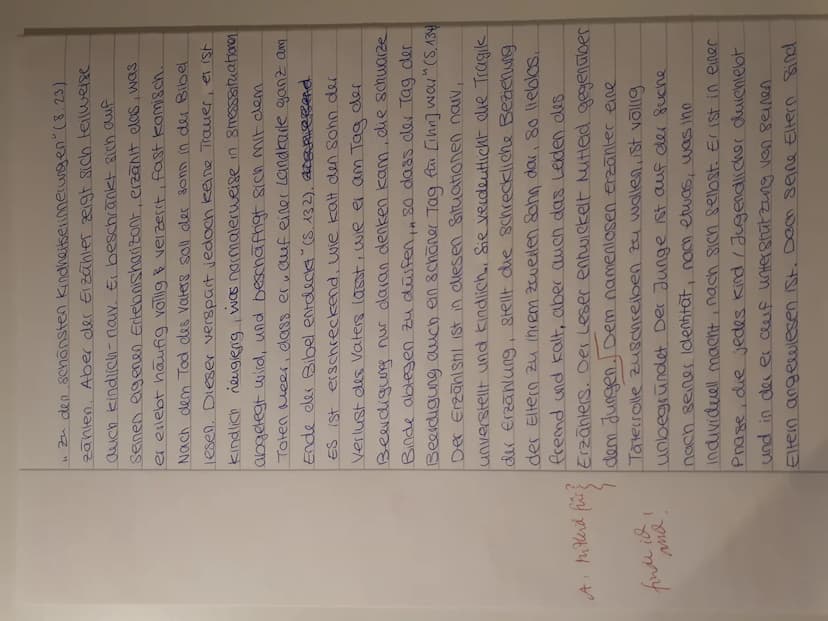 "zu den schönsten Kindheitserinnerungen" (S. 23)
zählen. Aber der Erzähler zeigt sich teilweise
auch kindlich-naiv. Er beschränkt sich auf
seinen eigenen Erlebnishorizont, erzählt das, was
er erlebt häufig völlig verzerrt, fast komisch.
Nach dem Tod des Vaters soll der Sohn in der Bibel
lesen. Dieser verspürt jedoch keine Trauer, er ist
kindlich neugierig, was normalerweise in Stresssituationen
abgelegt wird, und beschäftigt sich mit dem
Toten Meer, dass er "auf einer Landkarte ganz am
Ende der Bibel entdeckt" (S. 132).
Es ist erschreckend, wie kalt den Sohn der
Verlust des Vaters lässt, wie er am Tag der
Beerdigung nur daran denken kann, die schwarze
Binde ablegen zu dürfen, "so dass der Tag der
Beerdigung auch ein schöner Tag für [ihn] war" (S. 134)
Der Erzählstil ist in diesen Situationen naiv,
unverstellt und kindlich. Sie verdeutlicht die Tragik
der Erzählung, stellt die schreckliche Beziehung
der Eltern zu ihrem zweiten Sohn dar, so lieblos,
fremd und kalt, aber auch das Leiden des
Erzählers. Der Leser entwickelt Mitleid gegenüber
A: Mitleid für
dem Jungen. Dem namenlosen Erzähler eine
Täterrolle zuschreiben zu wollen, ist völlig
finde ich
unbegründet. Der Junge ist auf der Suche
auch!
nach seiner Identität, nach etwas, was ihn
individuell macht, nach sich selbst. Er ist in einer
Phase, die jedes Kind / Jugendlicher durchlebt
und in der er auf Unterstützung von seinen
Eltern angewiesen ist. Doch seine Eltern sind